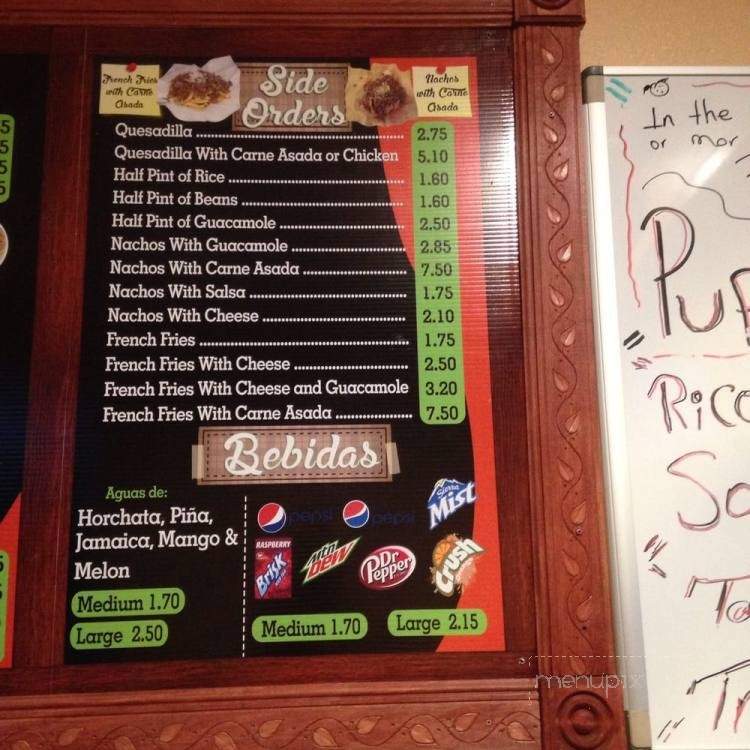 French Fries
with Carne
Asada
Side
Orders
Nachos
with Carne
Asada
Quesadilla 2.75
Quesadilla With Carne Asada or Chicken 5.10
Half Pint of Rice 1.60
Half Pint of Beans 1.60
Half Pint of Guacamole 2.50
Nachos With Guacamole 2.85
Nachos With Carne Asada 7.50
Nachos With Salsa 1.75
Nachos With Cheese 2.10
French Fries 1.75
French Fries With Cheese 2.50
French Fries With Cheese and Guacamole 3.20
French Fries With Carne Asada 7.50
Bebidas
Aguas de:
Horchata, Piña,
Jamaica, Mango &
Melon
Medium 1.70
Large 2.50
pepsi pepsi Sierra Mist
RASPBERRY Brisk Mtn DEW Dr Pepper Crush
Medium 1.70 Large 2.15
In the
or mor
Rice
menupix